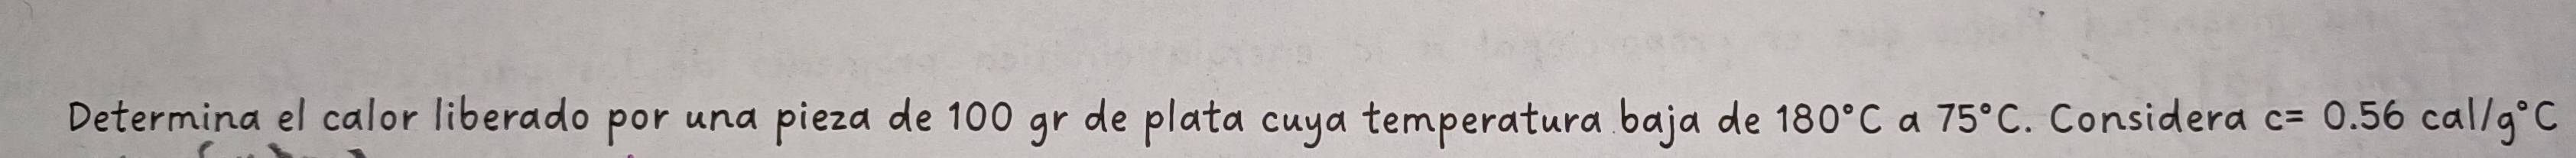 Determina el calor liberado por una pieza de 100 gr de plata cuya temperatura baja de 180°C a 75°C. Considera c= 0.56 cal/g°C